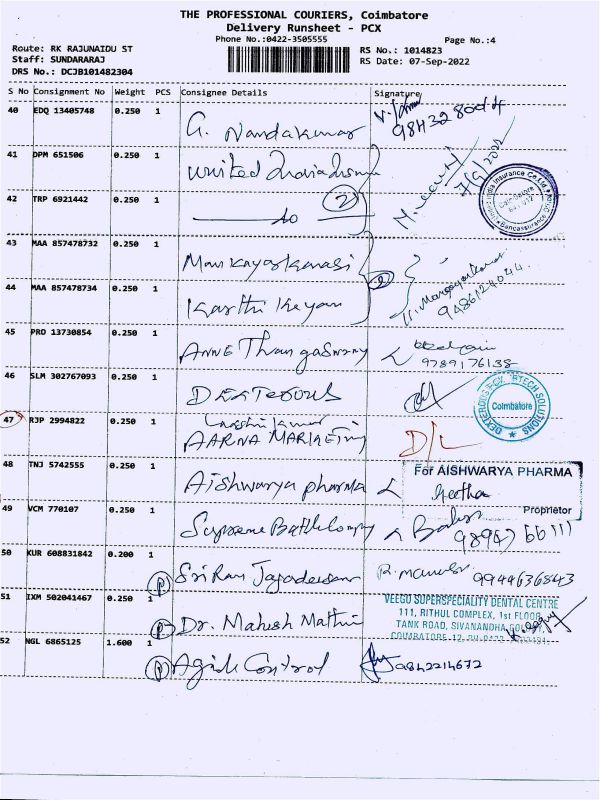 THE PROFESSIONAL COURIERS, Coimbatore
Delivery Runsheet - PCX
Phone No.:0422-3505555
Page No.:4
Route: RK RAJUNAIDU ST
RS No.: 1014823
Staff: SUNDARARAJ
RS Date: 07-Sep-2022
DRS No.: DCJB101482304
S No Consignment No Weight PCS Consignee Details Signature
40 EDQ 13405748 0.250 1 G. Nandakumar
41 DPM 651506 0.250 1 United India
7/9/2022
42 TRP 6921442 0.250 1 do 2
43 MAA 857478732 0.250 1
44 MAA 857478734 0.250 1 Karthikeyan
9486124044
45 PRO 13730854 0.250 1 ANNE Thangaswamy
9789176138
46 SLM 302767093 0.250 1 DEXTEROUS
Coimbatore
47 RJP 2994822 0.250 1 Lakshmi Kumar
AARNA MARKETING D/L
48 TNJ 5742555 0.250 1 Aishwarya pharma
For AISHWARYA PHARMA
Geetha
Proprietor
49 VCM 770107 0.250 1 Supreme Battle Company
50 KUR 608831842 0.200 1 P Sri Ram Jagadeesan
9944636843
51 IXM 502041467 0.250 1 P Dr. Mahesh Mathur
VEEGO SUPERSPECIALITY DENTAL CENTRE
111, RITHUL COMPLEX, 1st FLOOR,
TANK ROAD, SIVANANDHA COLONY,
52 NGL 6865125 1.600 1 P Agile Control
9842214672